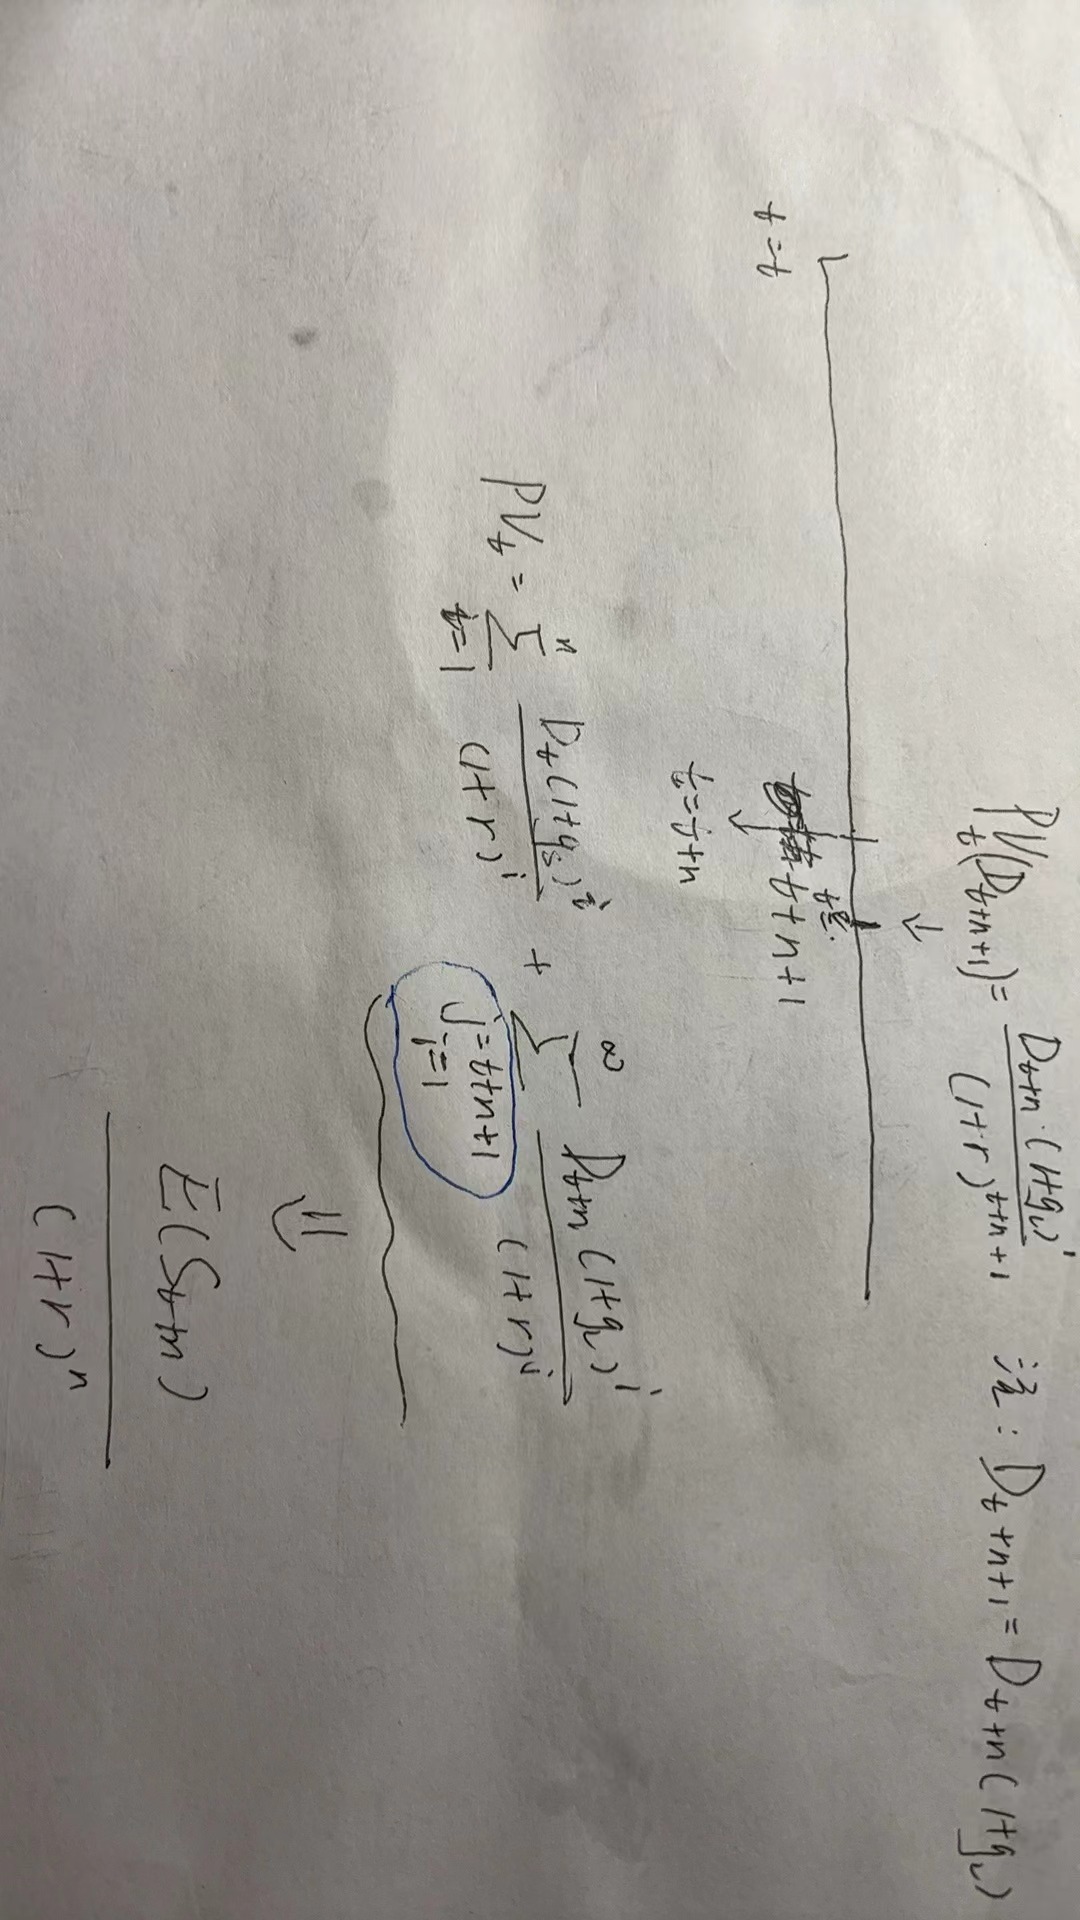 PV_t(D_{t+n+1}) = \frac{D_{t+n} \cdot (1+g_L)^1}{(1+r)^{t+n+1}} 注: D_{t+n+1} = D_{t+n}(1+g_L)
↓
t=t
t+n+1
↓
t=t+n
PV_t = \sum_{i=1}^{n} \frac{D_t(1+g_s)^i}{(1+r)^i} + \sum_{i=t+n+1}^{∞} \frac{D_{t+n}(1+g_L)^i}{(1+r)^i}
j=1
⇓
\frac{E(S_{t+n})}{(1+r)^n}